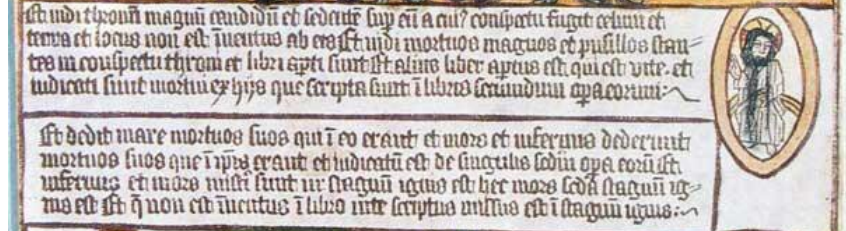 Et vidi thronū magnū candidū et sedentē sup eū a cuiꝰ conspectu fugit celum et
terra et locus non est īuentus ab eis Et uidi mortuos magnos et pusillos stan⸗
tes in conspectu throni et libri apti sunt Et alius liber aptus est qui est vite. et
iudicati sunt mortui ex hijs que scripta sunt ī libris secundum opa eorum:
Et dedit mare mortuos suos qui ī eo erant et mors et infernus dederunt
mortuos suos que ī ipīs erant et iudicatū est de singulis scdm̄ opa eorū Et
infernus et mors missi sunt in stagnū ignis est hec mors scdā stagnū ig⸗
nis est Et q̄ non est īuentus ī libro uite scriptus missus est ī stagnum ignis: